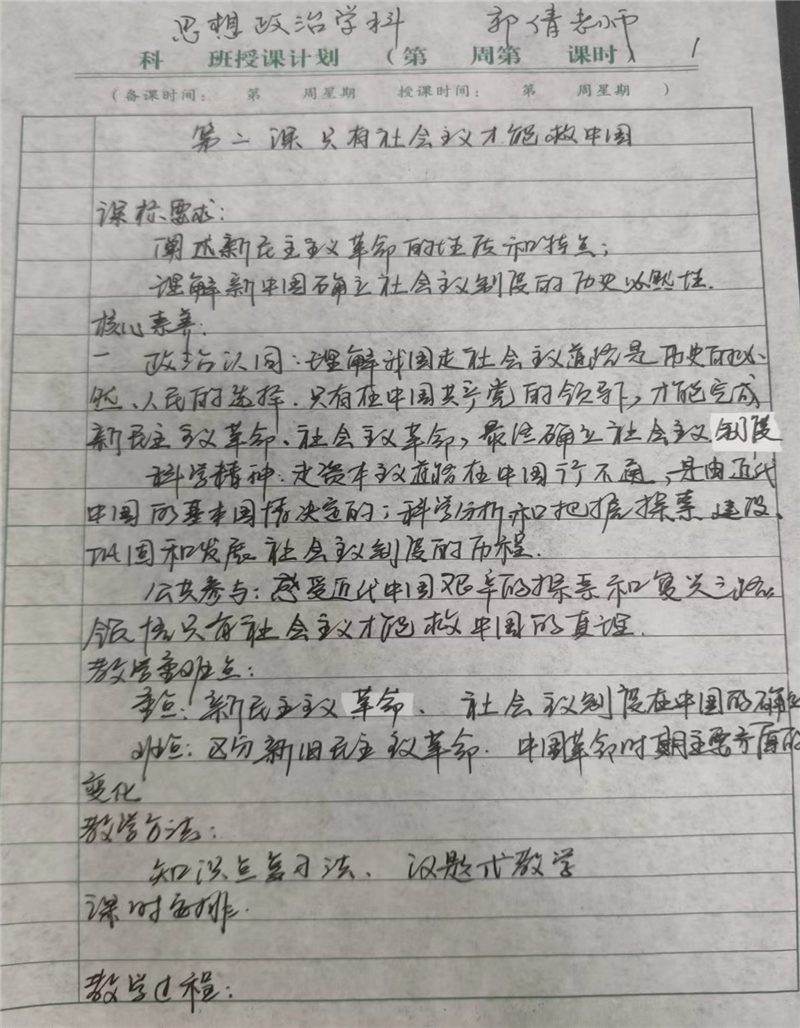 思想政治学科 郭倩老师
科 班授课计划 (第 周第 课时) 1
(备课时间: 第 周星期 授课时间: 第 周星期 )
第二课 只有社会主义才能救中国
课标要求:
阐述新民主主义革命的性质和特点;
理解新中国确立社会主义制度的历史必然性.
核心素养:
一 政治认同:理解我国走社会主义道路是历史的必
然、人民的选择.只有在中国共产党的领导,才能完成
新民主主义革命、社会主义革命,最终确立社会主义制度
科学精神:走资本主义道路在中国行不通,是由近代
中国的基本国情决定的;科学分析和把握探索、建设、
巩固和发展社会主义制度的历程.
公共参与:感受近代中国艰辛的探索和复兴之路,
领悟只有社会主义才能救中国的真理.
教学重难点:
重点:新民主主义革命、社会主义制度在中国的确立
难点:区分新旧民主主义革命.中国革命时期主要矛盾的
变化
教学方法:
知识点复习法、议题式教学
课时安排.
教学过程: